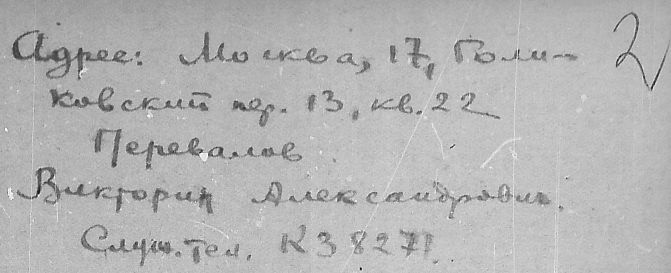 Адрес: Москва, 17, Голи-
ковский пер. 13, кв. 22
Перевалов
Викторин Александрович.
Служ. тел. К 3 82 71
2